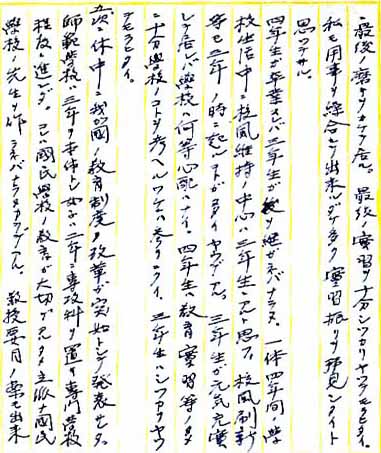 最後ノ磨キヲカケ居ル。最後ノ実習ヲ十分シツカリヤツテモラヒタイ。
私モ用事ヲ綜合シテ出来ルダケ多ク実習振リヲ拝見シタイト
思ツテヰル。
四年生ガ卒業スレバ三年生ガ継ガネバナラヌ。一体四年間ノ学
校生活中ニ校風維持ノ中心ハ三年生ニアルト思フ。校風刷新
等モ三年ノ時ニ起ルコトガ多イヤウデアル。三年生ガ元気充実
シテ居レバ学校ハ何等心配ハナイ。四年生ハ教育実習等ノタメ
ニ十分学校ノコトヲ考ヘルワケニハ参ラナイ。三年生ハシツカリヤツ
テモラヒタイ。
次ニ休中ニ我ガ国ノ教育制度ノ改革ガ突如トシテ発表セラレタ。
師範学校ハ三年ヲ本体トシ如ニ二年ニ専攻科ヲ置キ専門学校
程度ニ進ンダ。コレハ国民学校ノ教育ガ大切デアルタメ立派ナ国民
学校ノ先生ヲ作ラネバナラヌカラデアル。教授要目ノ案モ出来